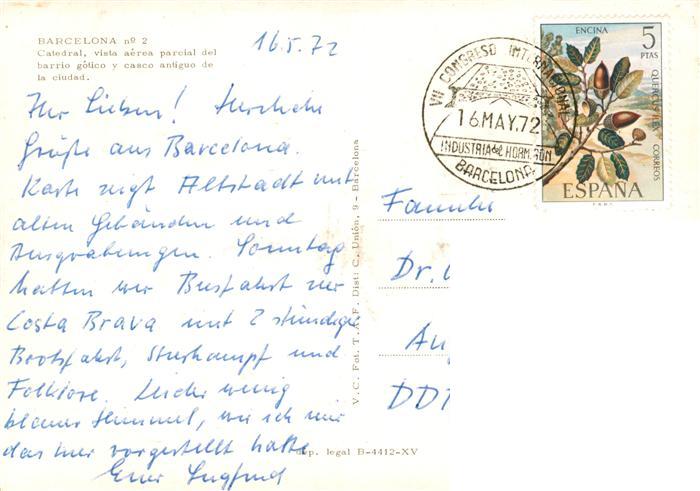 BARCELONA nº 2
Catedral, vista aérea parcial del
barrio gótico y casco antiguo de
la ciudad.
16.5.72
Ihr Lieben! Herzliche
Grüße aus Barcelona.
Karte zeigt Altstadt mit
alten Gebäuden und
Ausgrabungen. Sonntag
hatten wir Busfahrt zur
Costa Brava mit 2 stündiger
Bootsfahrt, Stierkampf und
Folklore. Leider wenig
blauer Himmel, wie ich mir
das hier vorgestellt hatte
Euer Siegfried
V. C. Fot. T. A. F. Dist: C. Unión, 9 - Barcelona
dep. legal B-4412-XV
VII CONGRESO INTERNACIONAL
16 MAY. 72
INDUSTRIA del HORMIGÓN
BARCELONA
ENCINA
5
PTAS
QUERCUS ILEX
CORREOS
ESPAÑA
Familie
Dr.
DD